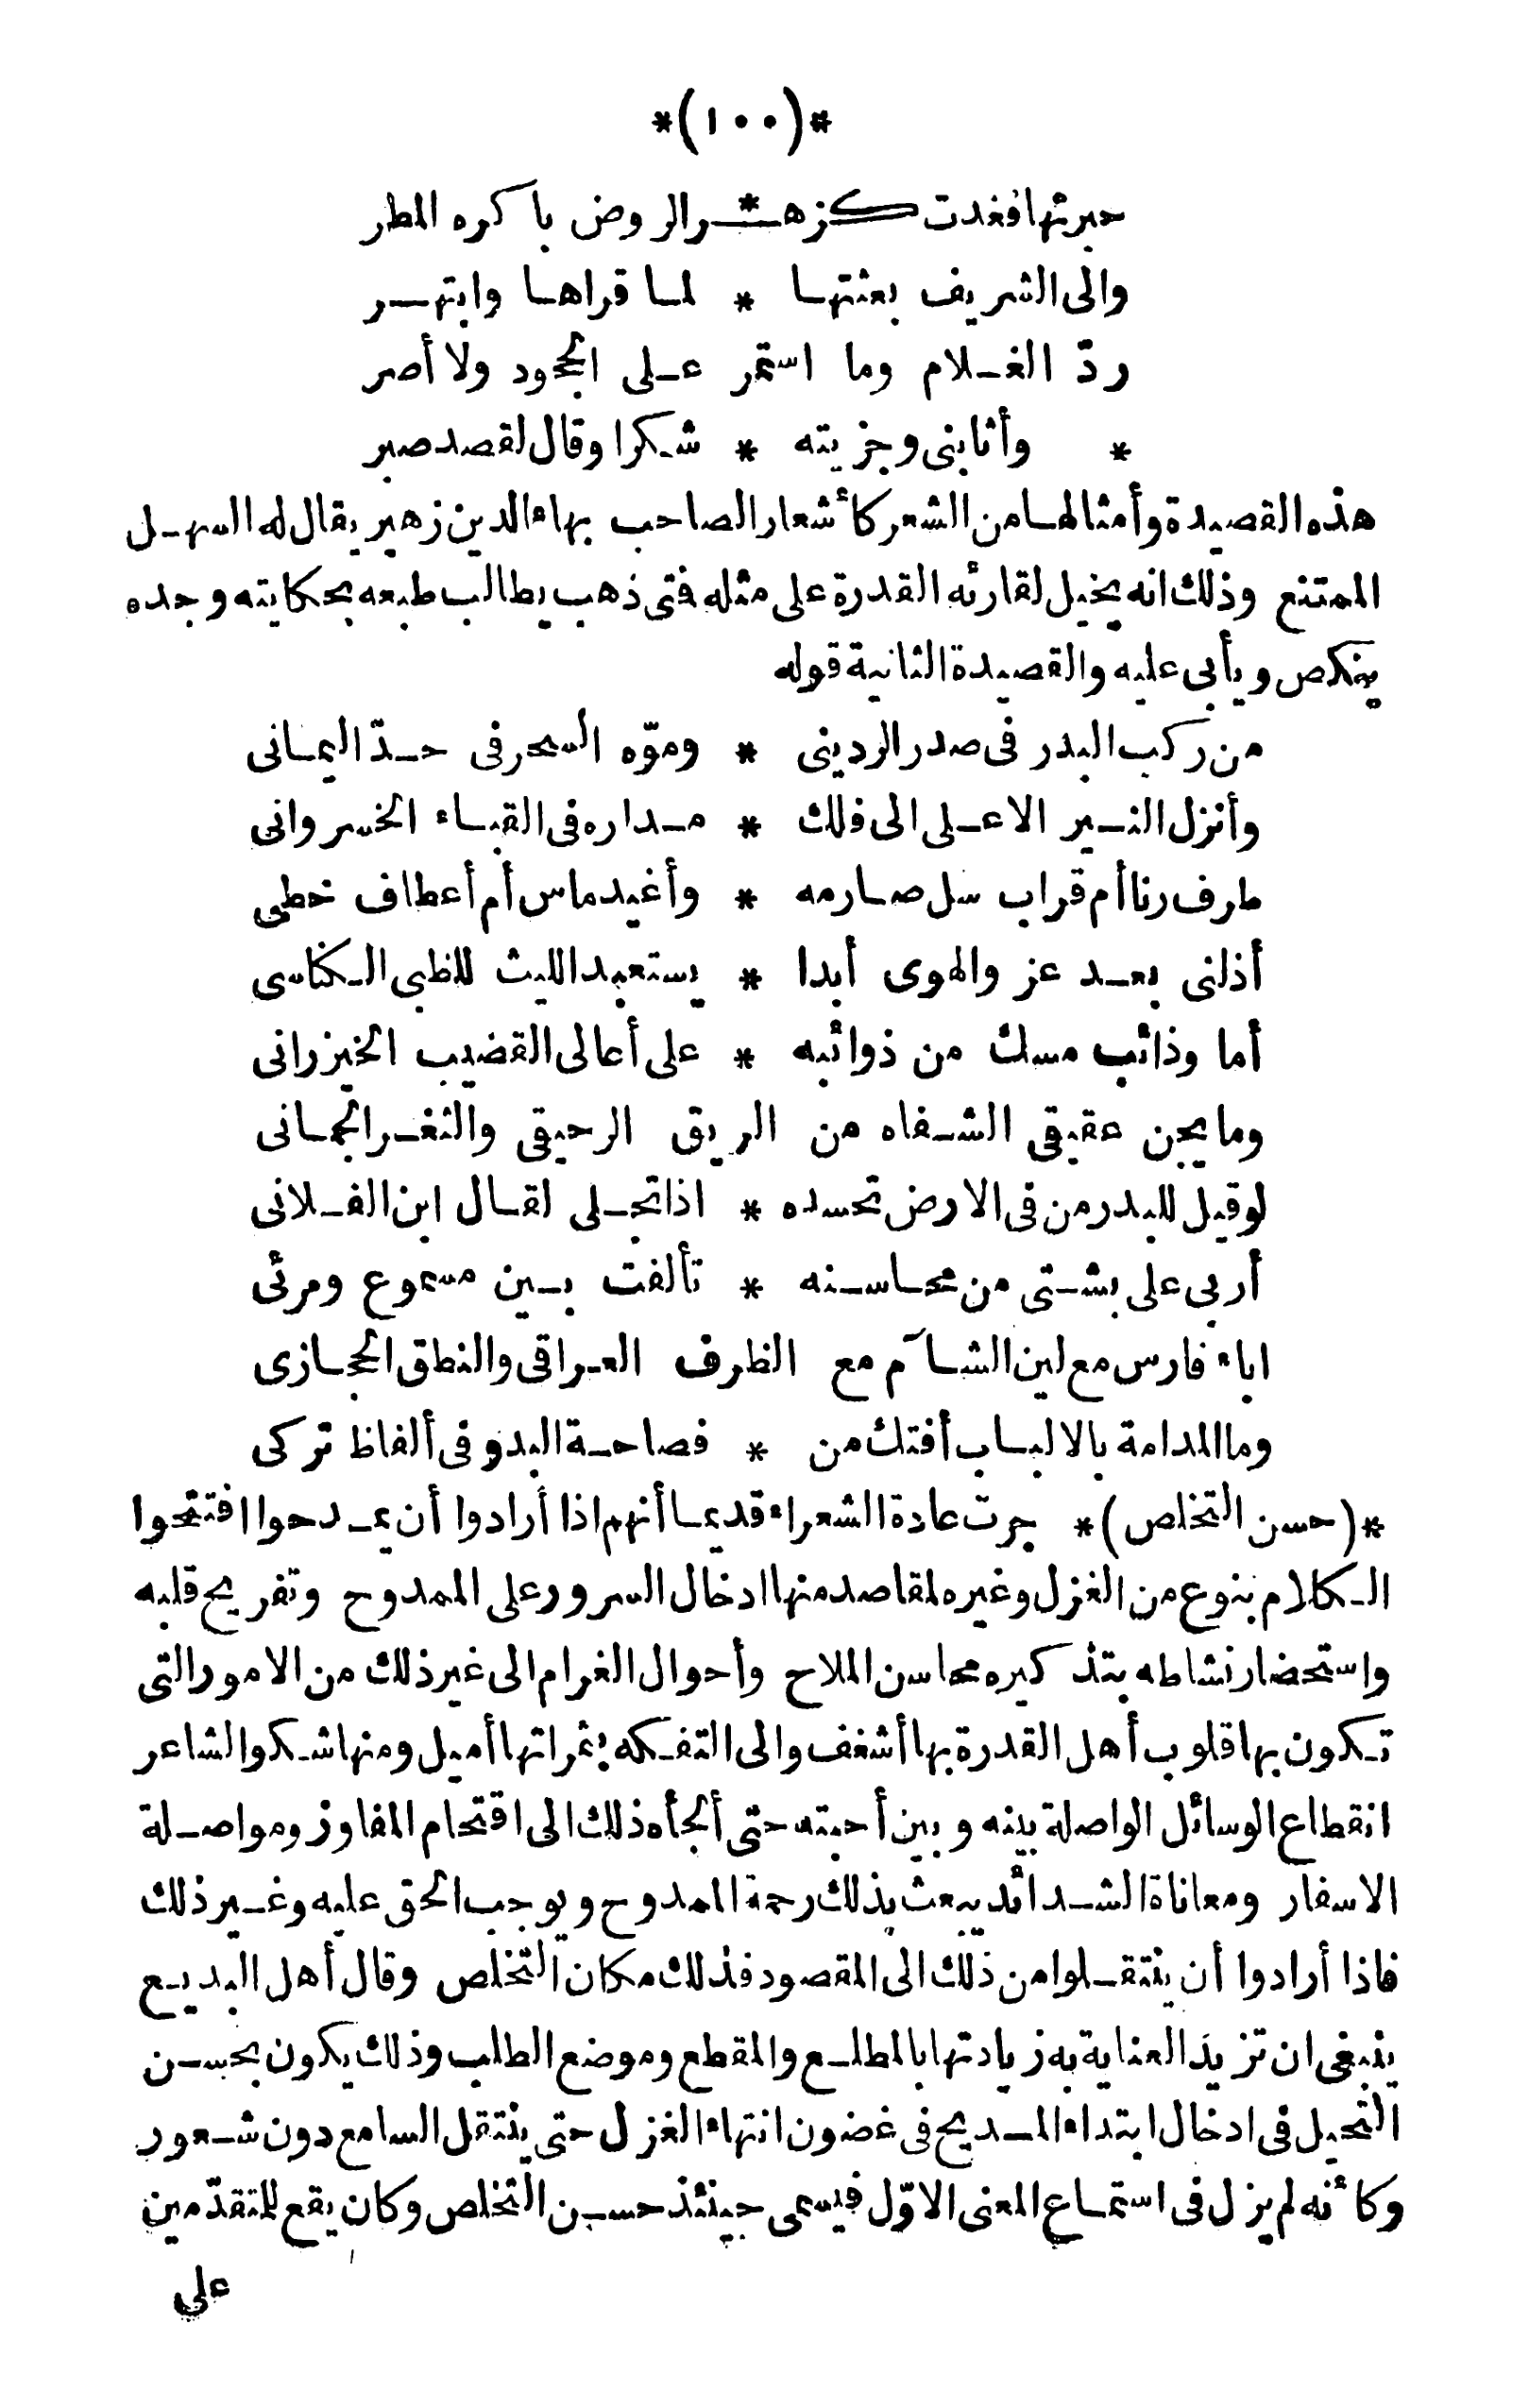 *(١٠٠)*
حبرتها فغدت كزهـ * ـر الروض باكره المطر
والى الشريف بعثتها * لما قراها وابتهر
ردّ الغلام وما استمر على الجحود ولا أصر
* وأثابنى وجزيته * شكرا وقال لقصد صبر
هذه القصيدة وأمثالها من الشعر كأشعار الصاحب بهاء الدين زهير يقال له السهل
الممتنع وذلك انه يخيل لقارئه القدرة على مثله فتى ذهب يطالب طبعه بحكايته وجده
ينكص ويأبى عليه والقصيدة الثانية قوله
من ركب البدر فى صدر الردينى * وموّه السحر فى حدّ اليمانى
وأنزل النير الاعلى الى فلك * مداره فى القباء الخسروانى
طرف رنا أم قراب سل صارمه * وأغيد ماس أم أعطاف خطى
أذلنى بعد عز والهوى أبدا * يستعبد الليث للظبى الكناسى
أما وذائب مسك من ذوائبه * على أعالى القضيب الخيزرانى
وما يجن عقيقى الشفاه من الريق الرحيقى والثغر الجمانى
لو قيل للبدر من فى الارض تحسده * اذا تجلى لقال ابن الفلانى
أربى على بشتى من محاسنه * تألفت بين مسموع ومرئى
اباء فارس مع لين الشآم مع الظرف العراقى والنطق الحجازى
وما المدامة بالالباب أفتك من * فصاحة البدو فى ألفاظ تركى
*(حسن التخلص)* جرت عادة الشعراء قديما أنهم اذا أرادوا أن يمدحوا افتتحوا
الكلام بنوع من الغزل وغيره لمقاصد منها ادخال السرور على الممدوح وتفريح قلبه
واستحضار نشاطه بتذكيره محاسن الملاح وأحوال الغرام الى غير ذلك من الامور التى
تكون بها قلوب أهل القدرة بها أشغف والى التفكه بثمراتها أميل ومنها شكوا لشاعر
انقطاع الوسائل الواصلة بينه وبين أحبته حتى ألجأه ذلك الى اقتحام المفاوز ومواصلة
الاسفار ومعاناة الشدائد يبعث بذلك رحمة الممدوح ويوجب الحق عليه وغير ذلك
فاذا أرادوا أن ينتقلوا من ذلك الى المقصود فذلك مكان التخلص وقال أهل البديع
ينبغى ان تزيد العناية به زيادتها بالمطلع والمقطع وموضع الطلب وذلك يكون بحسن
التحيل فى ادخال ابتداء المديح فى غضون انتهاء الغزل حتى ينتقل السامع دون شعور
وكأنه لم يزل فى استماع المعنى الاوّل فيسمى حينئذ حسن التخلص وكان يقع للمتقدّمين
على